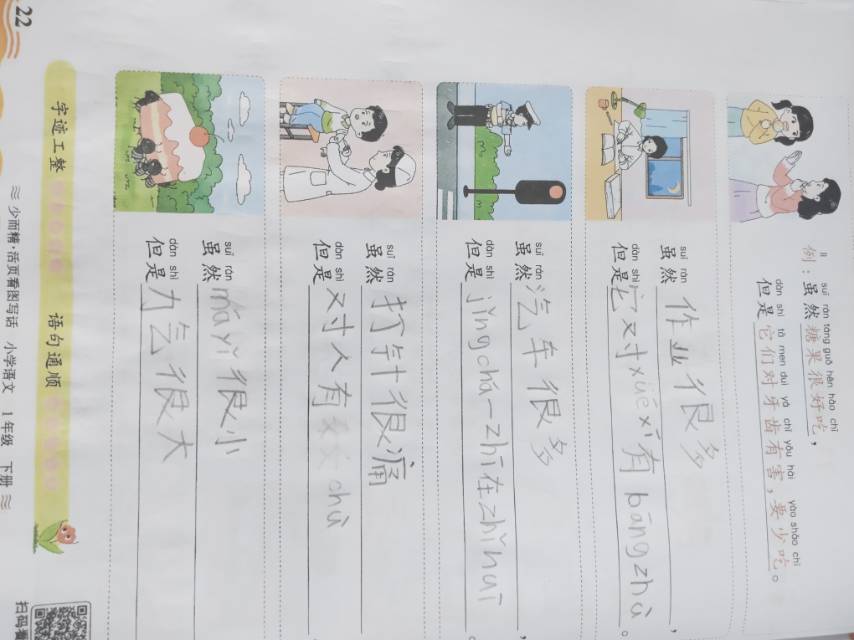 suī rán táng guǒ hěn hǎo chī
例：虽然糖果很好吃，
dàn shì tā men duì yá chǐ yǒu hài yào shǎo chī
但是它们对牙齿有害，要少吃。
suī rán
虽然作业很多，
dàn shì
但是它对xué xí有bāng zhù。
suī rán
虽然汽车很多，
dàn shì
但是jǐng chá一zhī在zhǐ huī
suī rán
虽然打针很痛
dàn shì
但是对人有chù
suī rán
虽然mǎ yǐ很小
dàn shì
但是力气很大
字迹工整 语句通顺
22 少而精·活页看图写话 小学语文 1年级 下册
扫码看